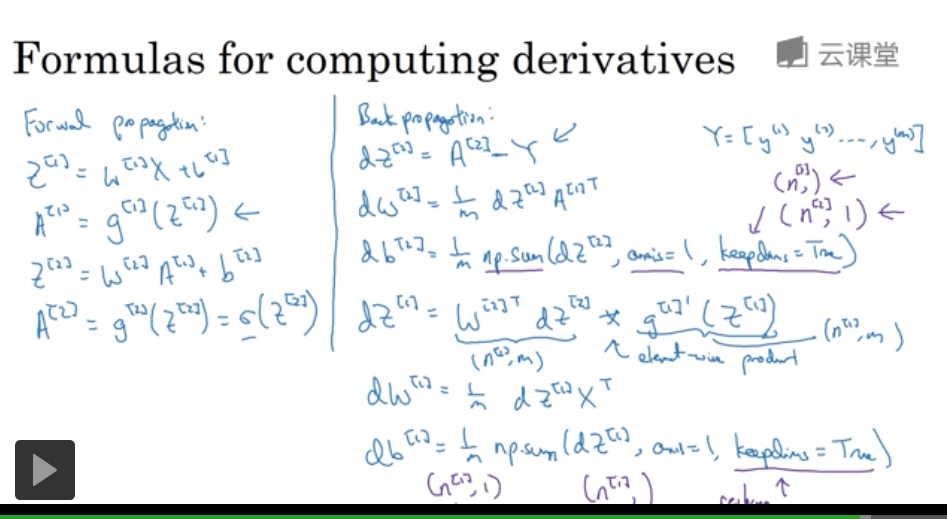 Formulas for computing derivatives
云课堂
Forward propagation:
Z^[1] = W^[1]X + b^[1]
A^[1] = g^[1](Z^[1]) ←
Z^[2] = W^[2] A^[1] + b^[2]
A^[2] = g^[2](Z^[2]) = σ(Z^[2])
Back propagation:
dZ^[2] = A^[2] - Y
dW^[2] = 1/m dZ^[2] A^[1]T
db^[2] = 1/m np.sum(dZ^[2], axis=1, keepdims=True)
dZ^[1] = W^[2]T dZ^[2] * g^[1]'(Z^[1])
(n^[1], m) ↑ element-wise product (n^[1], m)
dW^[1] = 1/m dZ^[1] X^T
db^[1] = 1/m np.sum(dZ^[1], axis=1, keepdims=True)
(n^[1], 1) (n^[1],) reshape ↑
Y = [y^(1) y^(2) ..., y^(m)]
(n^[2],) ←
(n^[2], 1) ←